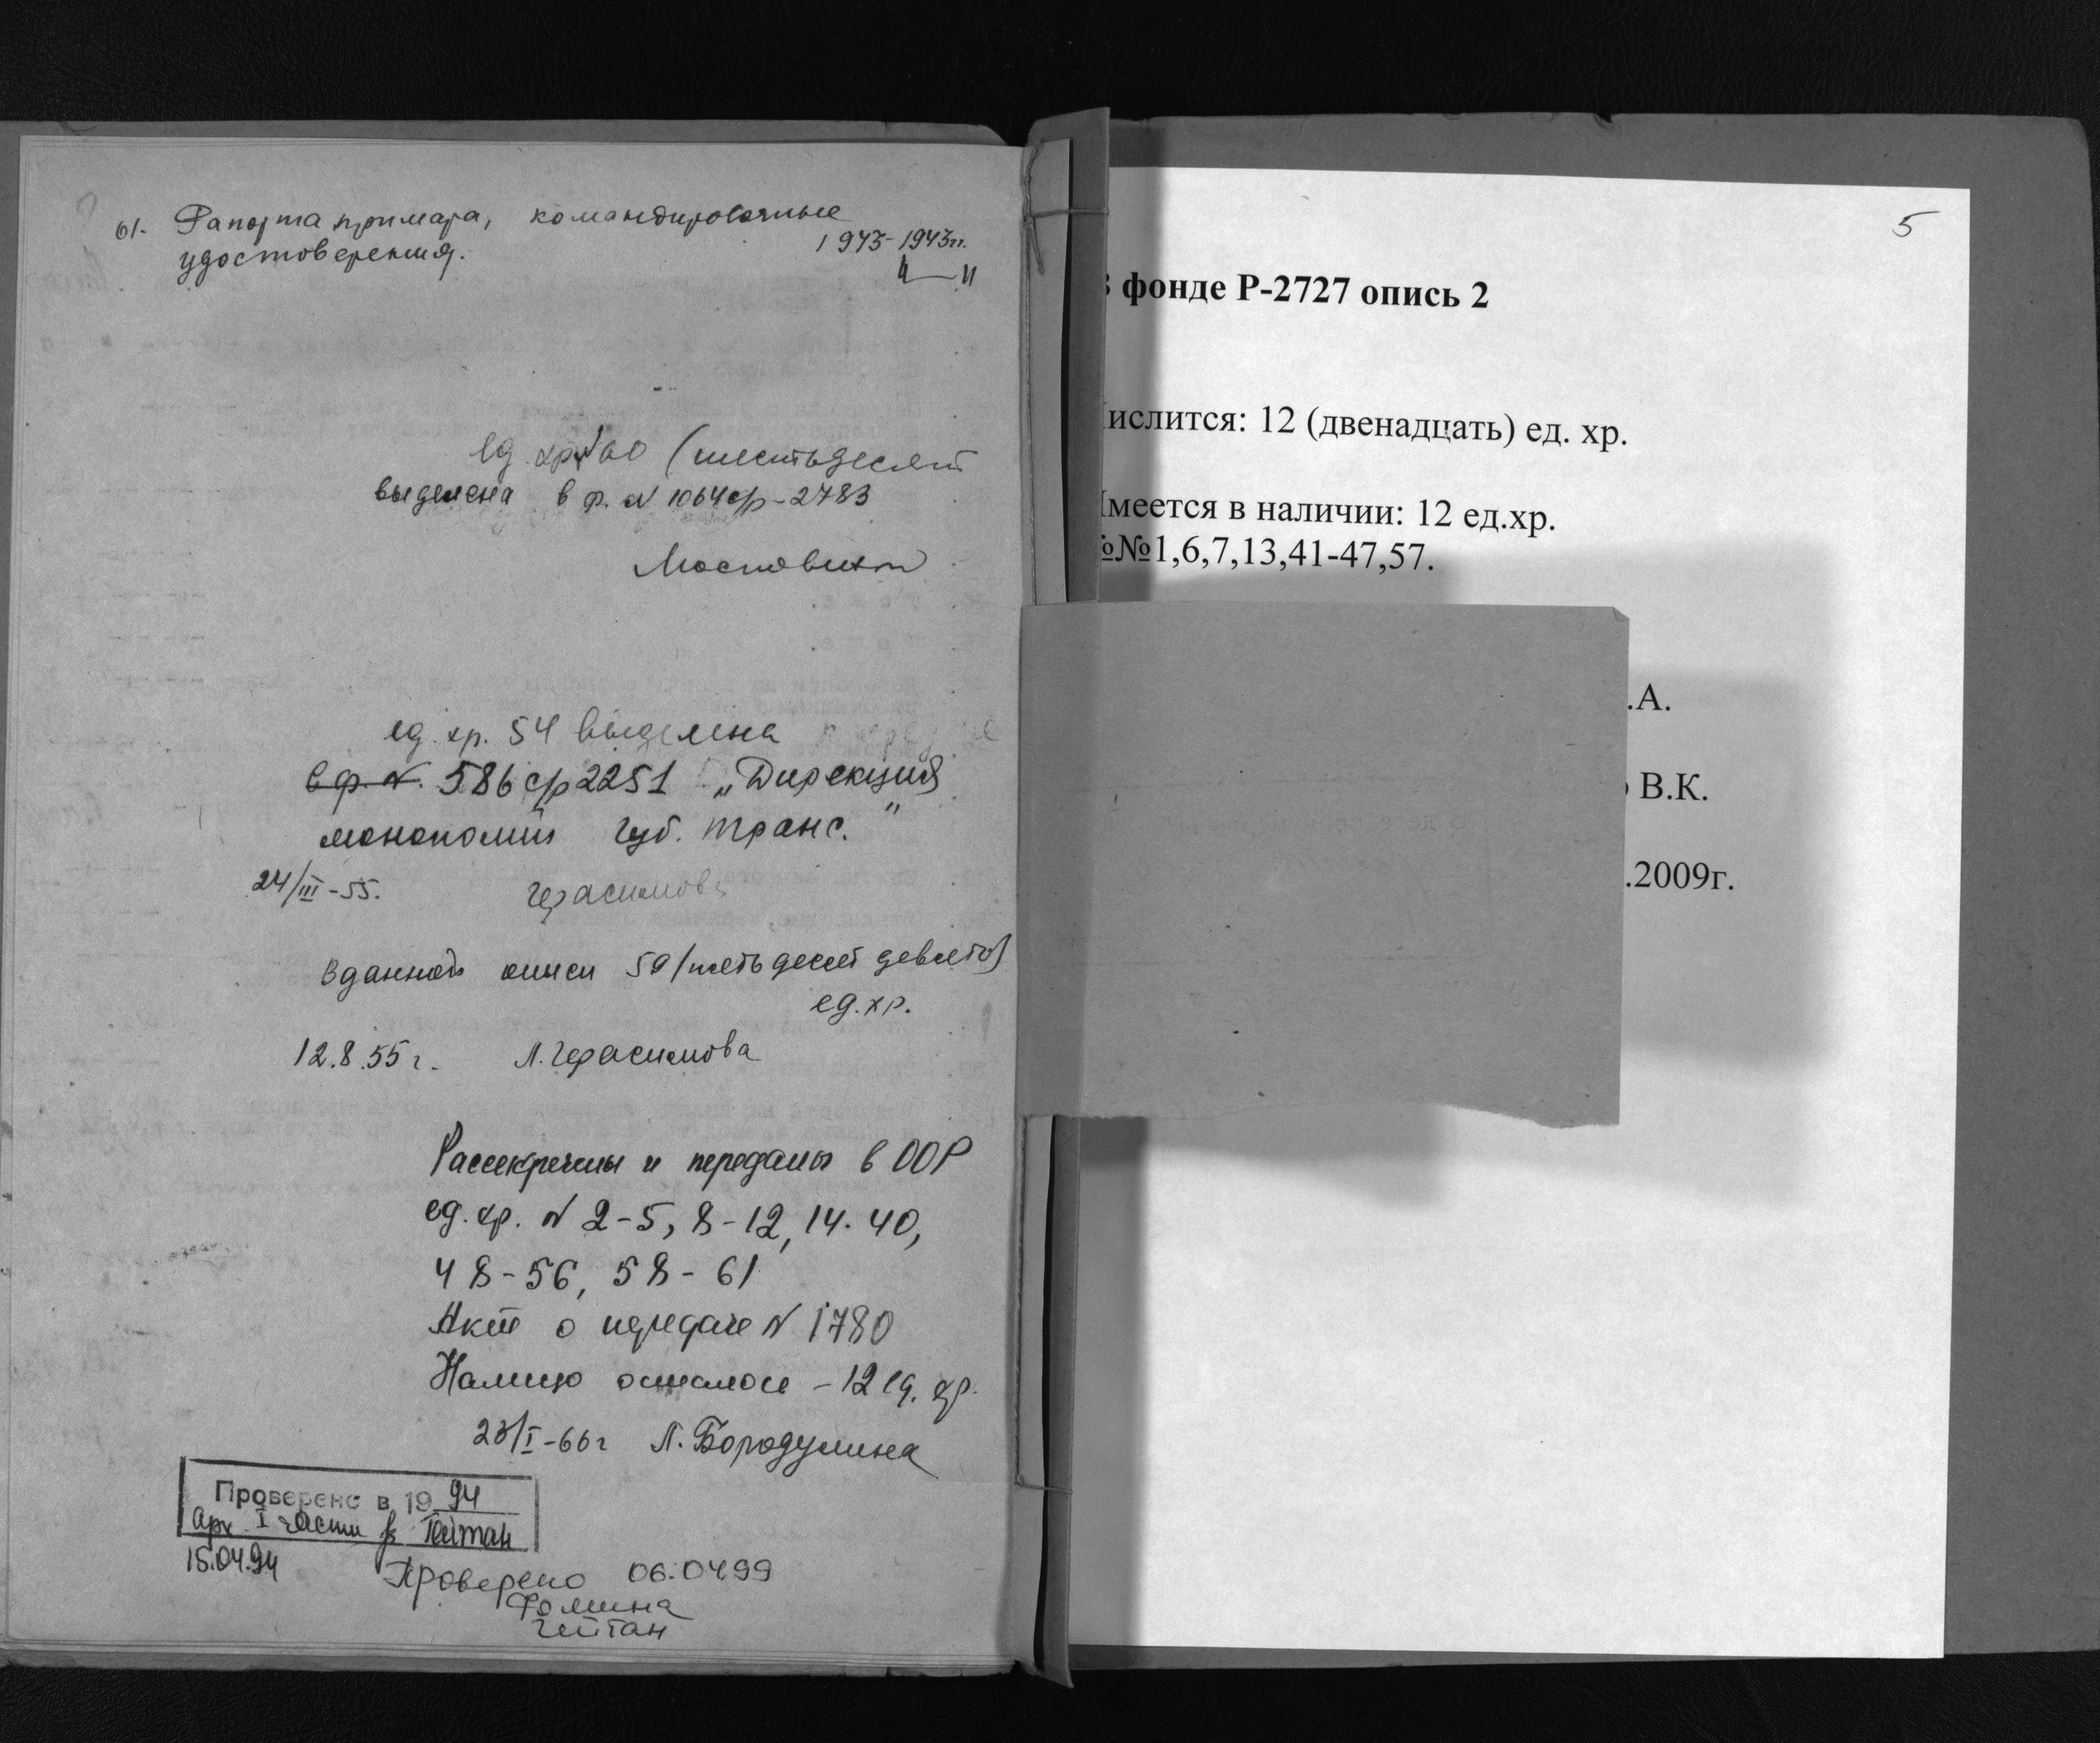 61. Рапорта примара, командировочные
удостоверения.
1943-1943гг.
ед. хр. № 60 (шестьдесят
выделена в ф. № 1064 с/р-2783
ед. хр. 54 выделена
в ф. №. 586 с/р 2251 „Дирекция
монополий губ. транс."
24/III-55. Герасимова
В данной описи 59 (пятьдесят девять)
ед. хр.
12.8.55 г. Л. Герасимова
Рассекречены и переданы в ООР
ед. хр. N 2-5, 8-12, 14-40,
48-56, 58-61
Акт о передаче N 1780
Налицо осталось - 12 ед. хр.
23/I-66 г Л. Бородулина
Проверено в 1994
арх I части
15.04.94
Проверено 06.04.99
Фомина
Гейтан
5
фонде Р-2727 опись 2
ислится: 12 (двенадцать) ед. хр.
меется в наличии: 12 ед.хр.
№1,6,7,13,41-47,57.
.А.
В.К.
.2009г.